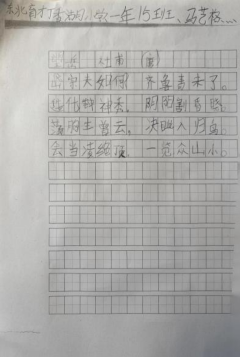 小学一年15班
望岳 杜甫（唐）
岱宗夫如何？齐鲁青未了。
造化钟神秀，阴阳割昏晓。
荡胸生曾云，决眦入归鸟。
会当凌绝顶，一览众山小。